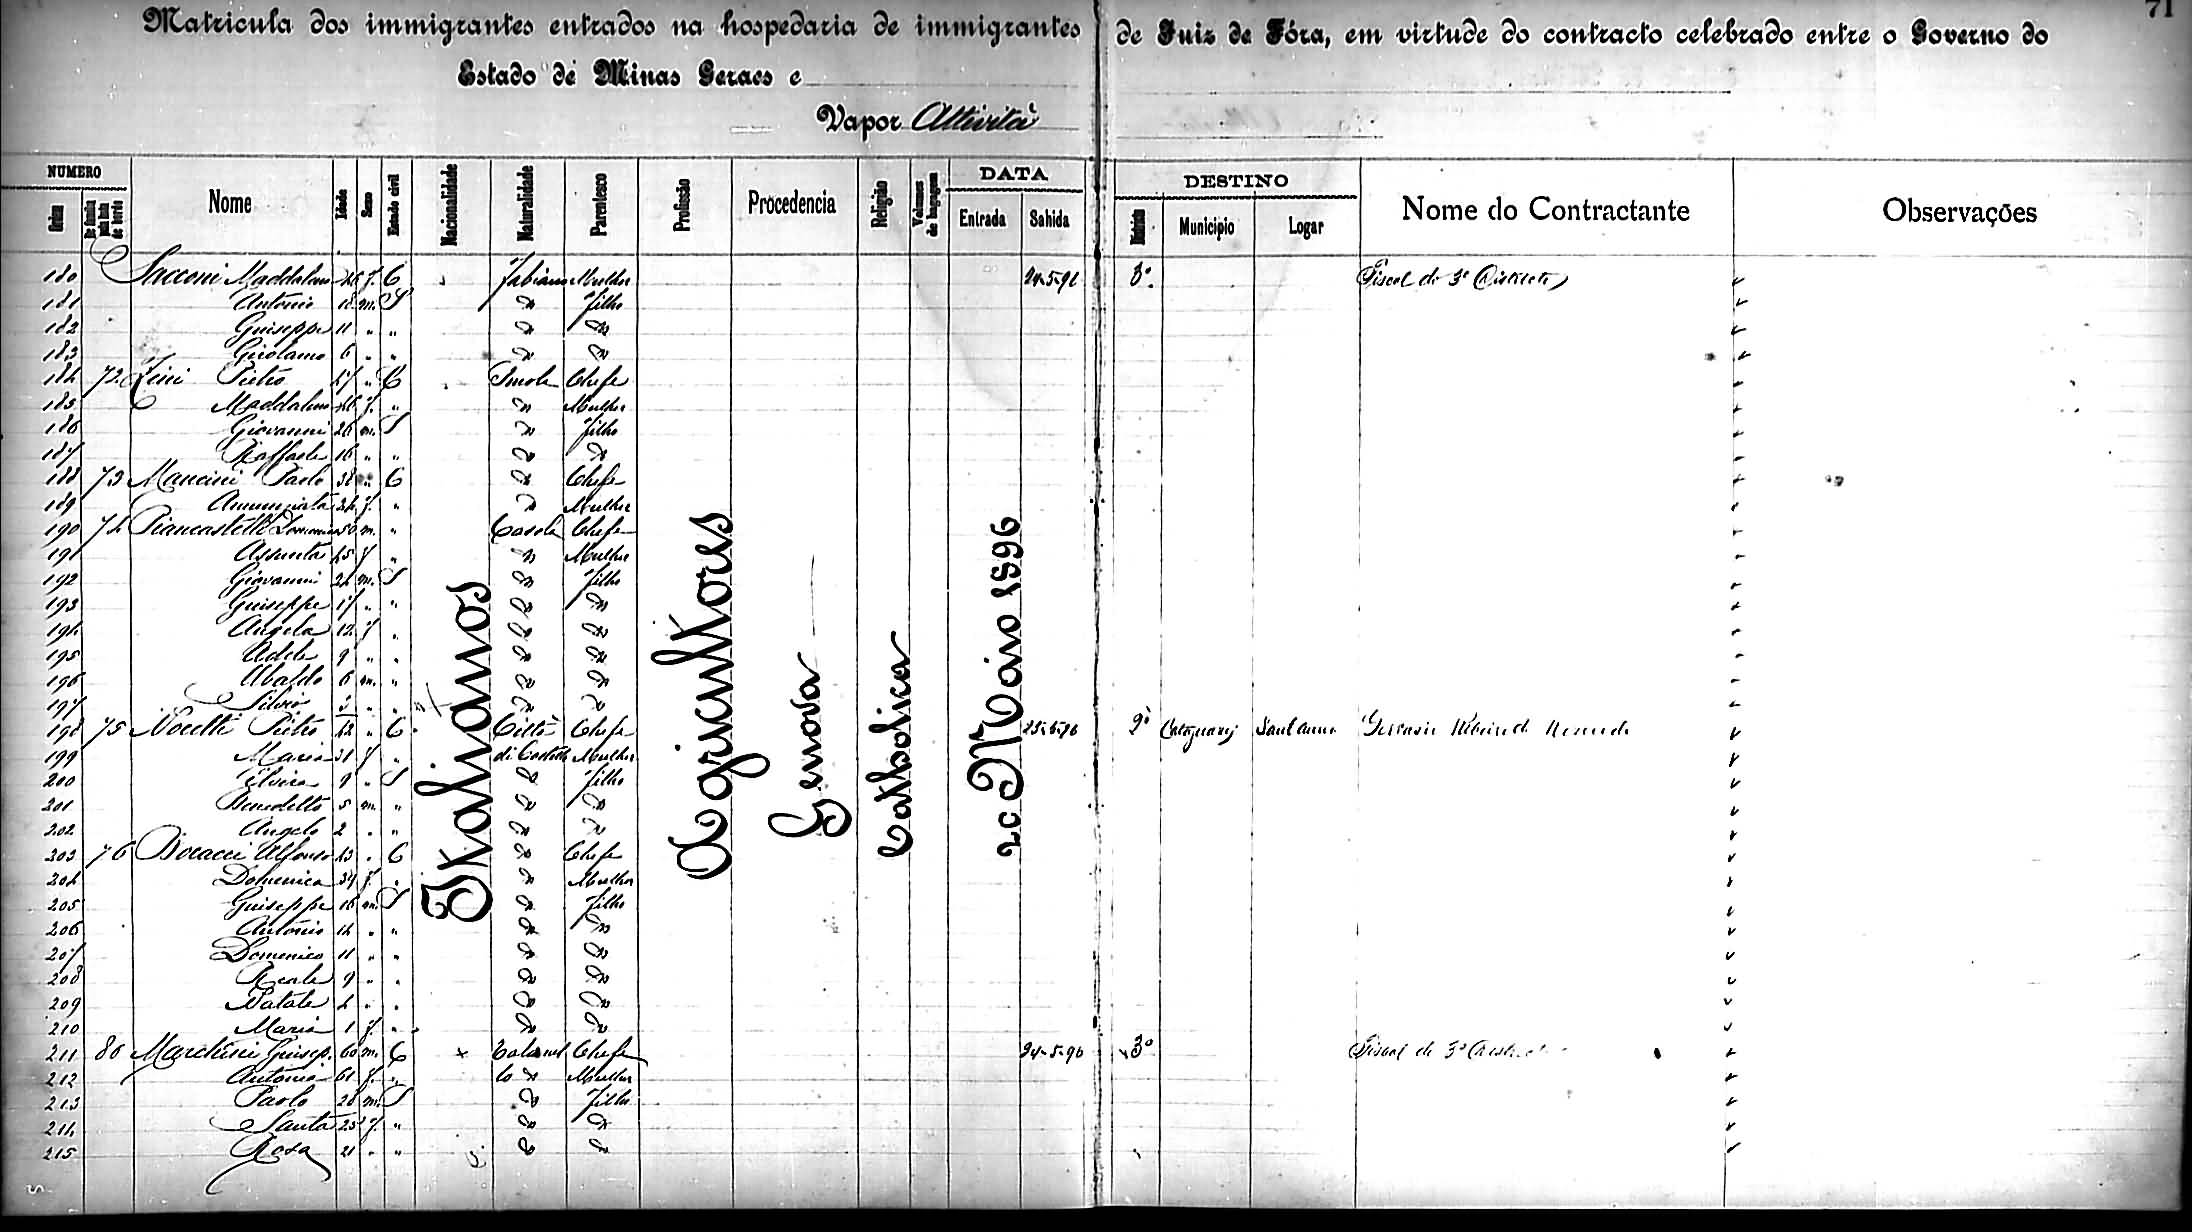 71
Matricula dos immigrantes entrados na hospedaria de immigrantes de Juiz de Fóra, em virtude do contracto celebrado entre o Governo do
Estado de Minas Geraes e
Vapor Attività
NUMERO Nome Idade Sexo Estado civil Nacionalidade Naturalidade Parentesco Profissão Procedencia Religião Volumes de bagagem DATA DESTINO Nome do Contractante Observações
Ordem De familia pela lista de bordo Entrada Sahida Districto Municipio Logar
Italianos
Agricultores
Genova
Catholica
20 Maio 1896
180 Sacconi Maddalena f. C Fabiano Mulher 24-5-96 3º Fiscal do 3º Districto
181 Antonio 18 m. S " Filho
182 Guiseppe 11 " " " "
183 Girolamo 6 " " " "
184 72 Pietro 47 " C Imola Chefe
185 Maddalena 46 f. " " Mulher
186 Giovanni 26 m. S " Filho
187 Raffaele 16 " " " "
188 73 Mancini Paolo 38 " C " Chefe
189 Annunziata 34 f. " " Mulher
190 74 Piancastelli Domenico 50 m. " Casola Chefe
191 Assunta 45 f " " Mulher
192 Giovanni 24 m. S " Filho
193 Guiseppe 17 " " " "
194 Angela 12 f " " "
195 Adele 9 " " " "
196 Ubaldo 6 m. " " "
197 Silvio 3 " " " "
198 75 Nocetti Pietro 42 " C Città Chefe 25-5-96 2º Cataguazes Sant'Anna Ribeiro de
199 Maria 31 f " di Castello Mulher
200 Elvira 9 " S " Filho
201 Benedetto 5 m. " " "
202 Angelo 2 " " " "
203 76 Bocacci Alfonso 43 " C " Chefe
204 Domenica 34 f. " " Mulher
205 Guiseppe 16 m. S " Filho
206 Antonio 14 " " " "
207 Domenico 11 " " " "
208 Reale 9 " " " "
209 Natale 4 " " " "
210 Maria 1 f. " " "
211 80 Marchini Guisep. 60 m. C Catanel Chefe 24-5-96 3º Fiscal do 3º District
212 Antonia 61 f. " lo " Mulher
213 Paolo 28 m. S " Filho
214 Santa 25 f. " " "
215 Rosa 21 " " " "